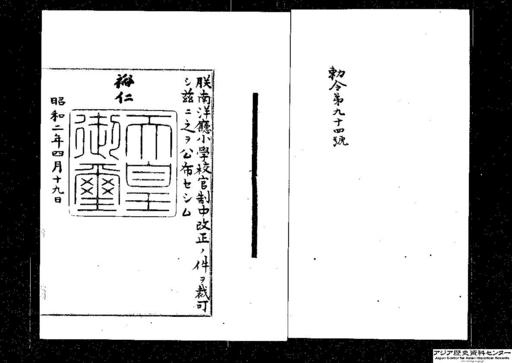 勅令第九十四號
朕南洋廳小學校官制中改正ノ件ヲ裁可
シ茲ニ之ヲ公布セシム
裕仁
天皇御璽
昭和二年四月十九日
アジア歴史資料センター
Japan Center for Asian Historical Records